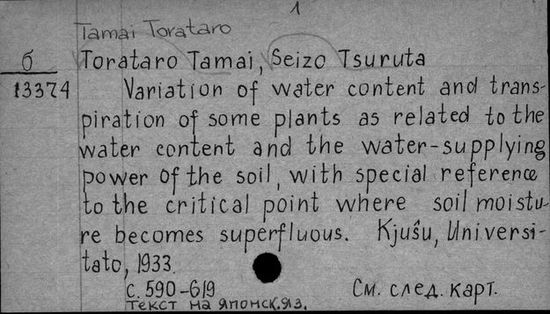 1
Tamai Torataro
б
13374
Torataro Tamai, Seizo Tsuruta
Variation of water content and trans-
piration of some plants as related to the
water content and the water-supplying
power of the soil, with special reference
to the critical point where soil moistu-
re becomes superfluous. Kjuŝu, Universi-
tato, 1933.
с. 590-619
См. след. карт.
текст на японск.яз.